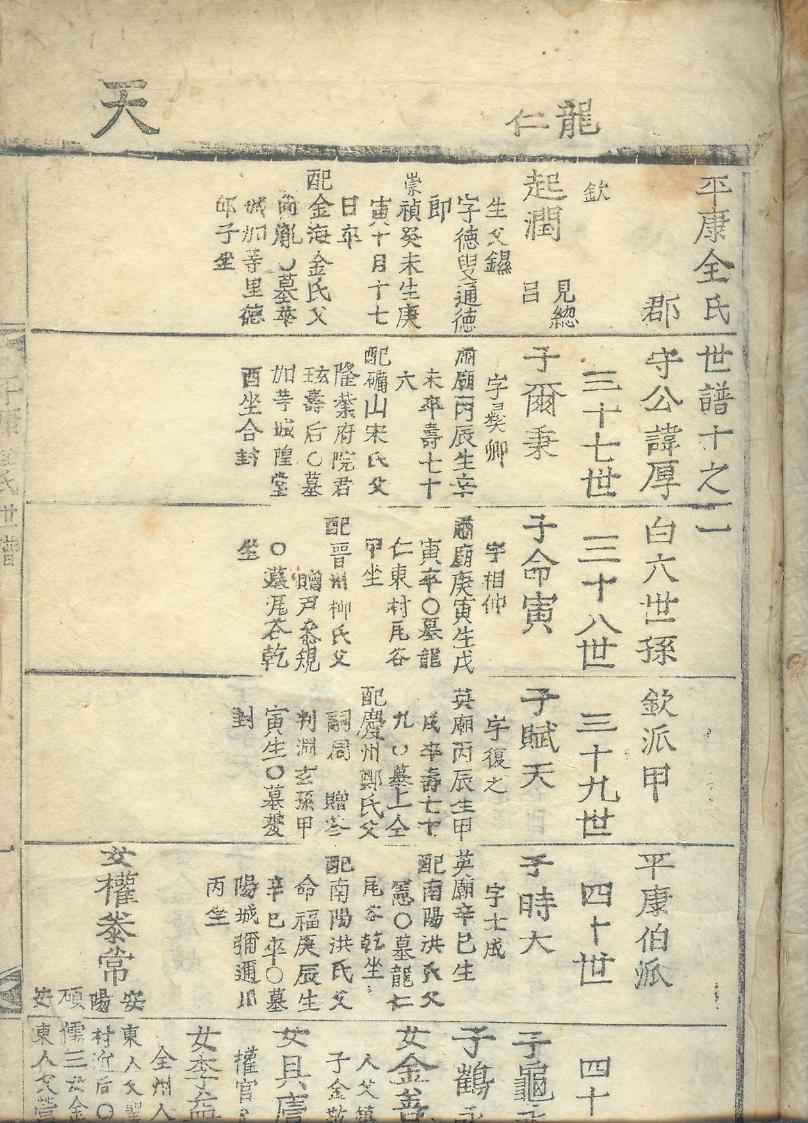 天
龍
仁
平康全氏世譜十之一
郡守公諱厚白六世孫 欽派甲 平康伯派
三十七世
三十八世
三十九世
四十世
四十
欽
起潤
見總
呂
生父鎰
字德叟通德
郎
崇禎癸未生庚
寅十月十七
日卒
配金海金氏父
尙胤〇墓華
城加等里德
邱子坐
子爾秉
字彛卿
肅廟丙辰生辛
未卒壽七十
六
配礪山宋氏父
隆紫府院君
玹壽后〇墓
加芋城隍堂
酉坐合封
子命寅
字相仲
肅廟庚寅生戊
寅卒〇墓龍
仁東村尾谷
甲坐
配晋州柳氏父
贈戶叅規
〇墓尾谷乾
坐
子賦天
字復之
英廟丙辰生甲
戌卒壽七十
九〇墓上仝
配慶州鄭氏父
嗣周 贈叅
判淵玄孫甲
寅生〇墓雙
封
子時大
字士成
英廟辛巳生
配南陽洪氏父
憲〇墓龍仁
尾谷乾坐
配南陽洪氏父
命福庚辰生
辛巳卒〇墓
陽城彌通川
丙坐
女權泰常
安
陽
碩
安
子龜
子鶴
女金善
人父鎭
子金敬
女具
權官
女李益
全州人
東人父聖
村近后〇
儒三女金
東人父營